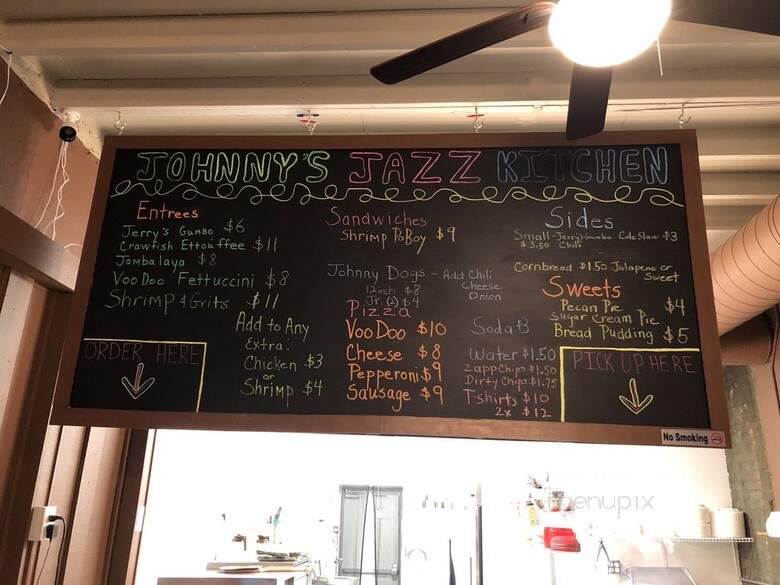 JOHNNY'S JAZZ KITCHEN
Entrees
Jerry's Gumbo $6
Crawfish Ettouffee $11
Jambalaya $8
VooDoo Fettuccini $8
Shrimp & Grits $11
Add to Any
Extra:
Chicken $3
or
Shrimp $4
ORDER HERE
Sandwiches
Shrimp PoBoy $9
Johnny Dogs - Add Chili
Cheese
Onion
12inch $8
Jr. (2) $4
Pizza
VooDoo $10
Cheese $8
Pepperoni $9
Sausage $9
Sides
Small-Jerry's Gumbo Cole Slaw $3
$3.50 Chili
Cornbread $1.50 Jalapeno or
Sweet
Sweets
Pecan Pie $4
Sugar Cream Pie
Bread Pudding $5
Soda $3
Water $1.50
Zapp Chips $1.50
Dirty Chips $1.75
T-Shirts $10
2x $12
PICK UP HERE
No Smoking
menupix